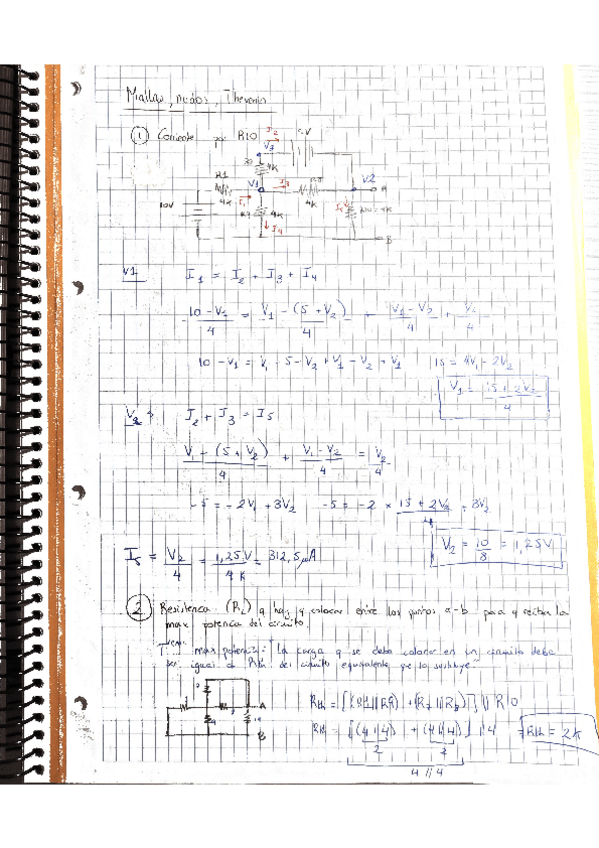 Mallas, nudos, Thevenin
① Corriente por R10
I2 5V
V3
R1 4K V2
V1 I3 A
4K I1 4K 4K I5
10V 4K
I4 B
V1 I1 = I2 + I3 + I4
10 - V1 / 4 = V1 - (5 + V2) / 4 + V1 - V2 / 4 + V1 / 4
10 - V1 = V1 - 5 - V2 + V1 - V2 + V1 15 = 4V1 - 2V2
V1 = 15 + 2V2 / 4
V2 → I2 + I3 = I5
V1 - (5 + V2) / 4 + V1 - V2 / 4 = V2 / 4
-5 = -2V1 + 3V2 -5 = -2 × 15 + 2V2 / 4 + 3V2
V2 = 10 / 8 = 1,25V
I5 = V2 / 4 = 1,25V / 4K = 312,5µA
② Resistencia (RL) q hay q colocar entre los puntos a-b para q reciba la
max potencia del circuito.
max potencia: "La carga q se debe colocar en un circuito debe
ser igual a Rth del circuito equivalente que lo sustituye"
A
B
Rth = [(R1||R9) + (R7||R8)] || R10
Rth = [(4||4) + (4||4)] || 4 = Rth = 2K
2 2
4 // 4